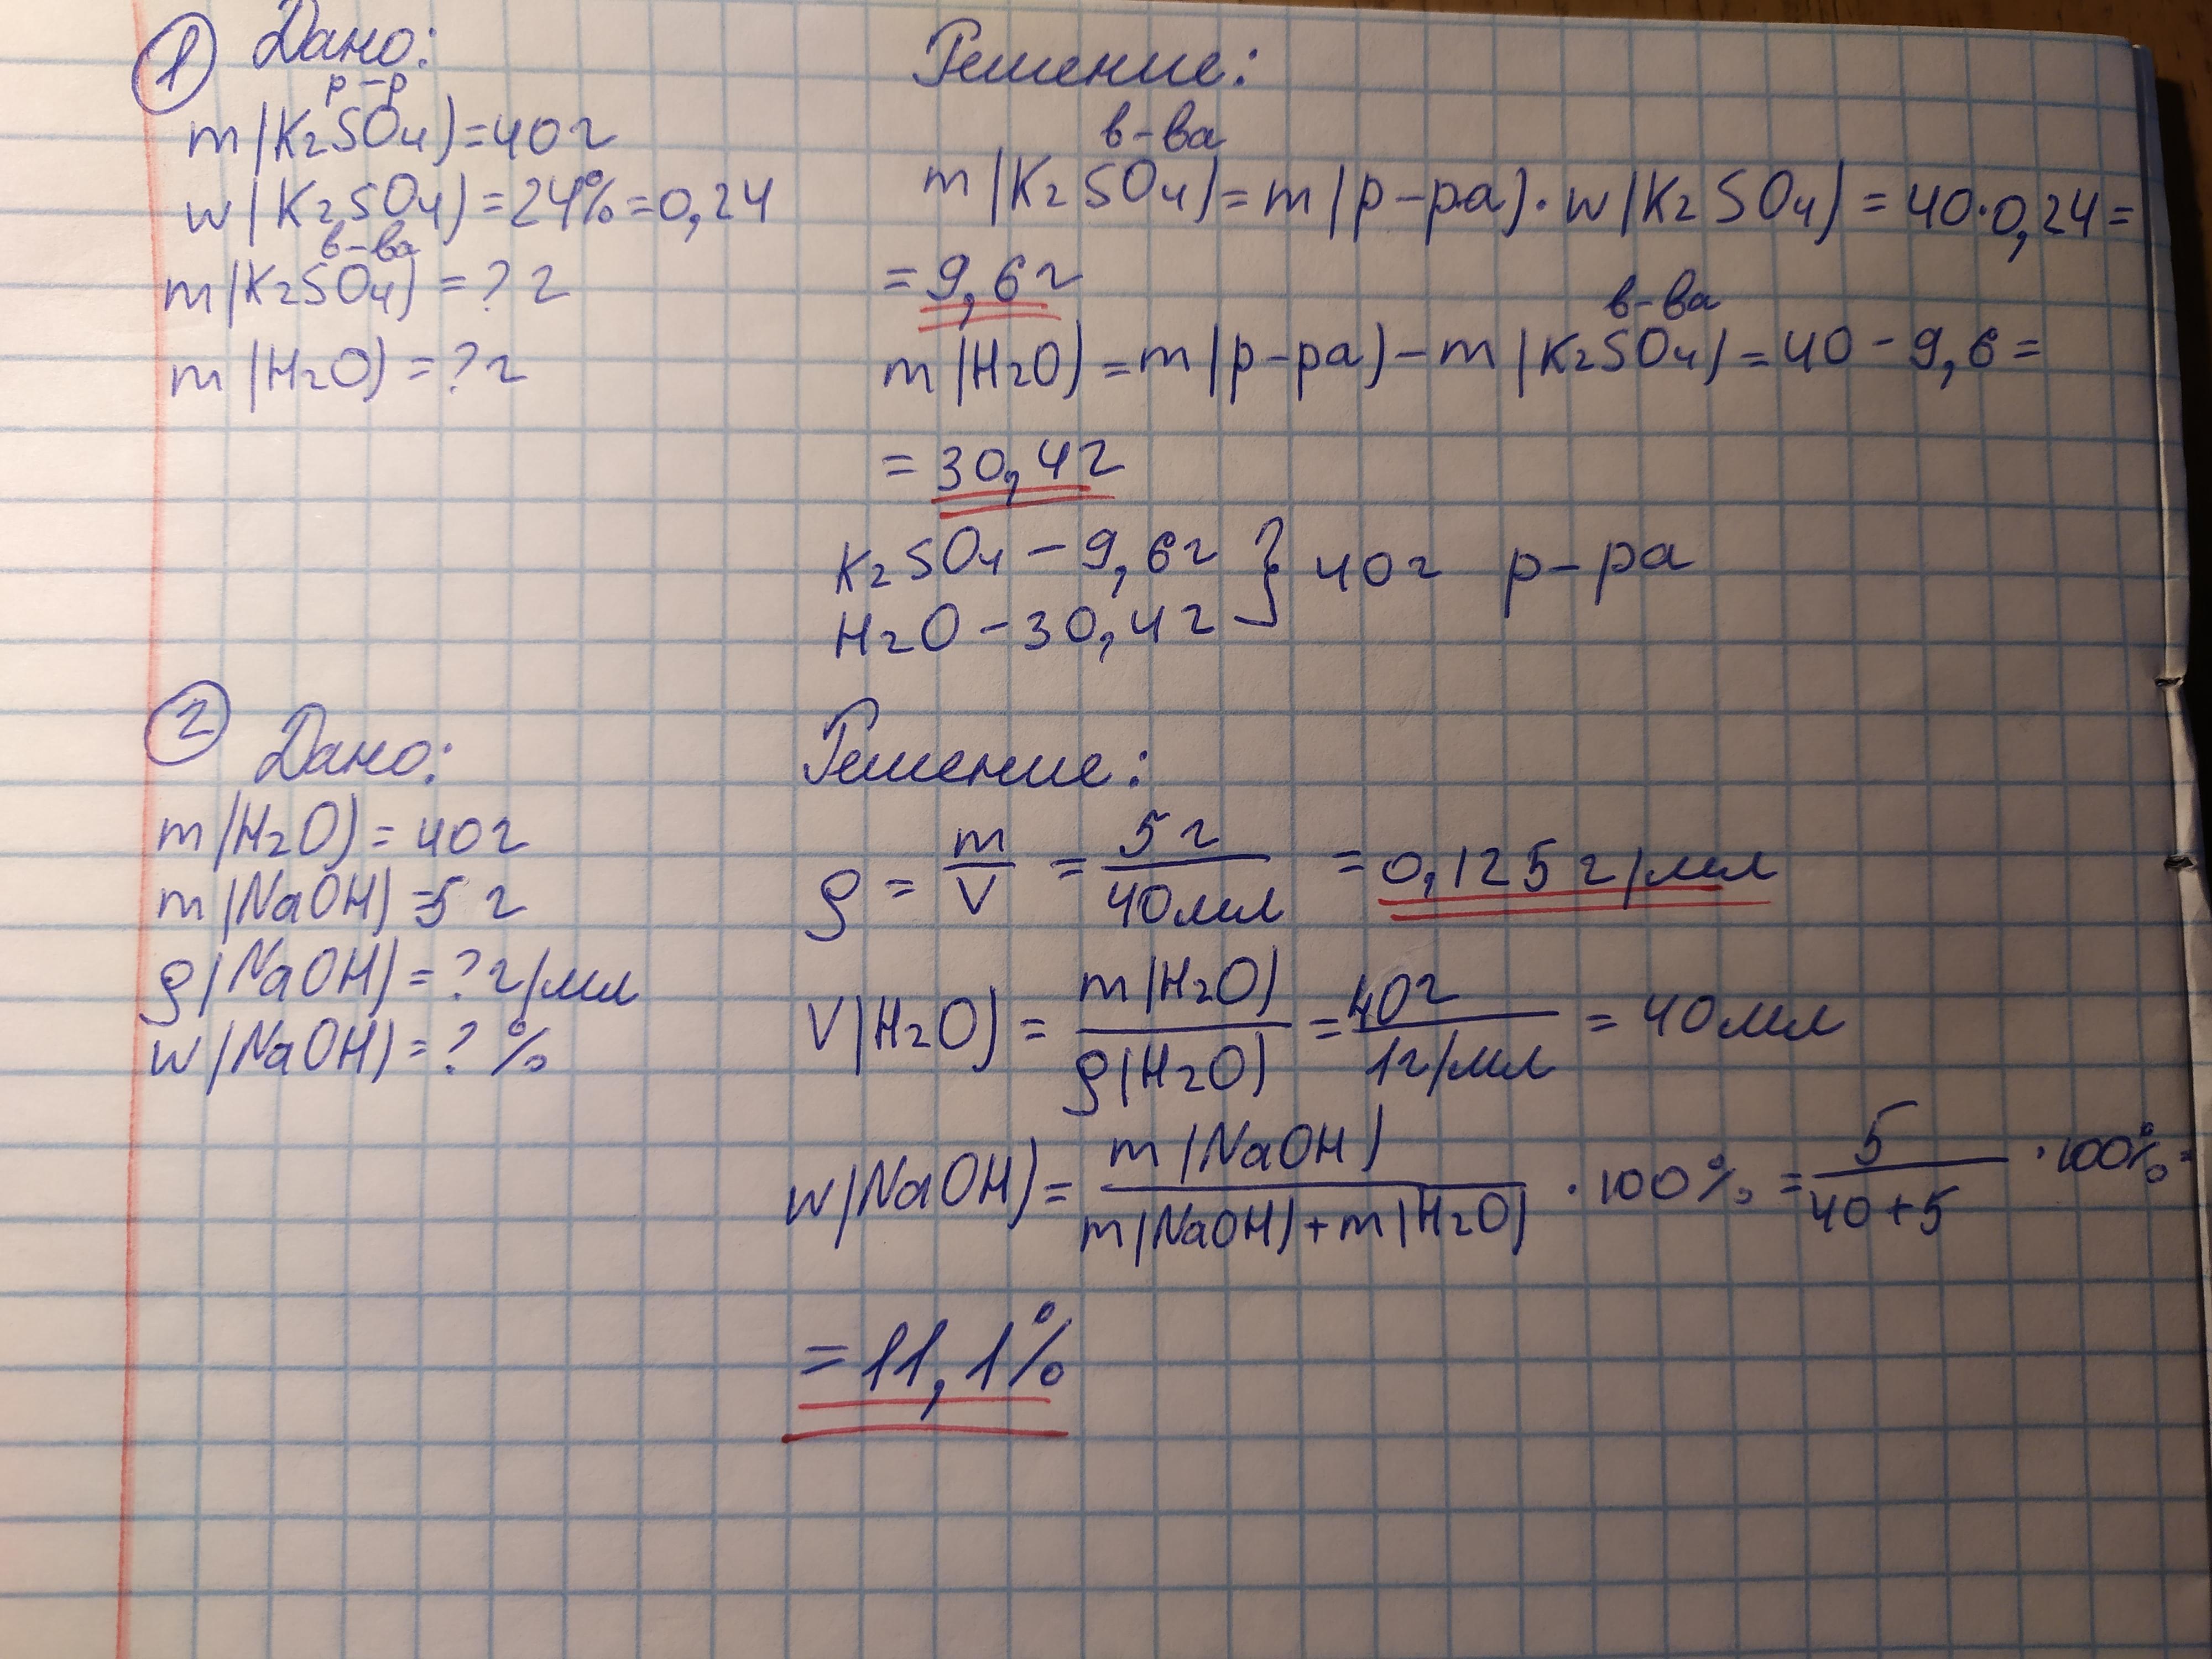 ① Дано:
р-р
m(K₂SO₄)=40г
w(K₂SO₄)=24%=0,24
в-ва
m(K₂SO₄)=?г
m(H₂O)=?г
Решение:
в-ва
m(K₂SO₄)=m(р-ра)·w(K₂SO₄)=40·0,24=
=9,6г
в-ва
m(H₂O)=m(р-ра)-m(K₂SO₄)=40-9,6=
=30,4г
K₂SO₄-9,6г } 40г р-ра
H₂O-30,4г
② Дано:
m(H₂O)=40г
m(NaOH)=5г
ρ(NaOH)=?г/мл
w(NaOH)=?%
Решение:
ρ = m/V = 5г/40мл = 0,125г/мл
V(H₂O) = m(H₂O)/ρ(H₂O) = 40г/1г/мл = 40мл
w(NaOH) = m(NaOH)/m(NaOH)+m(H₂O) · 100% = 5/40+5 · 100% =
=11,1%